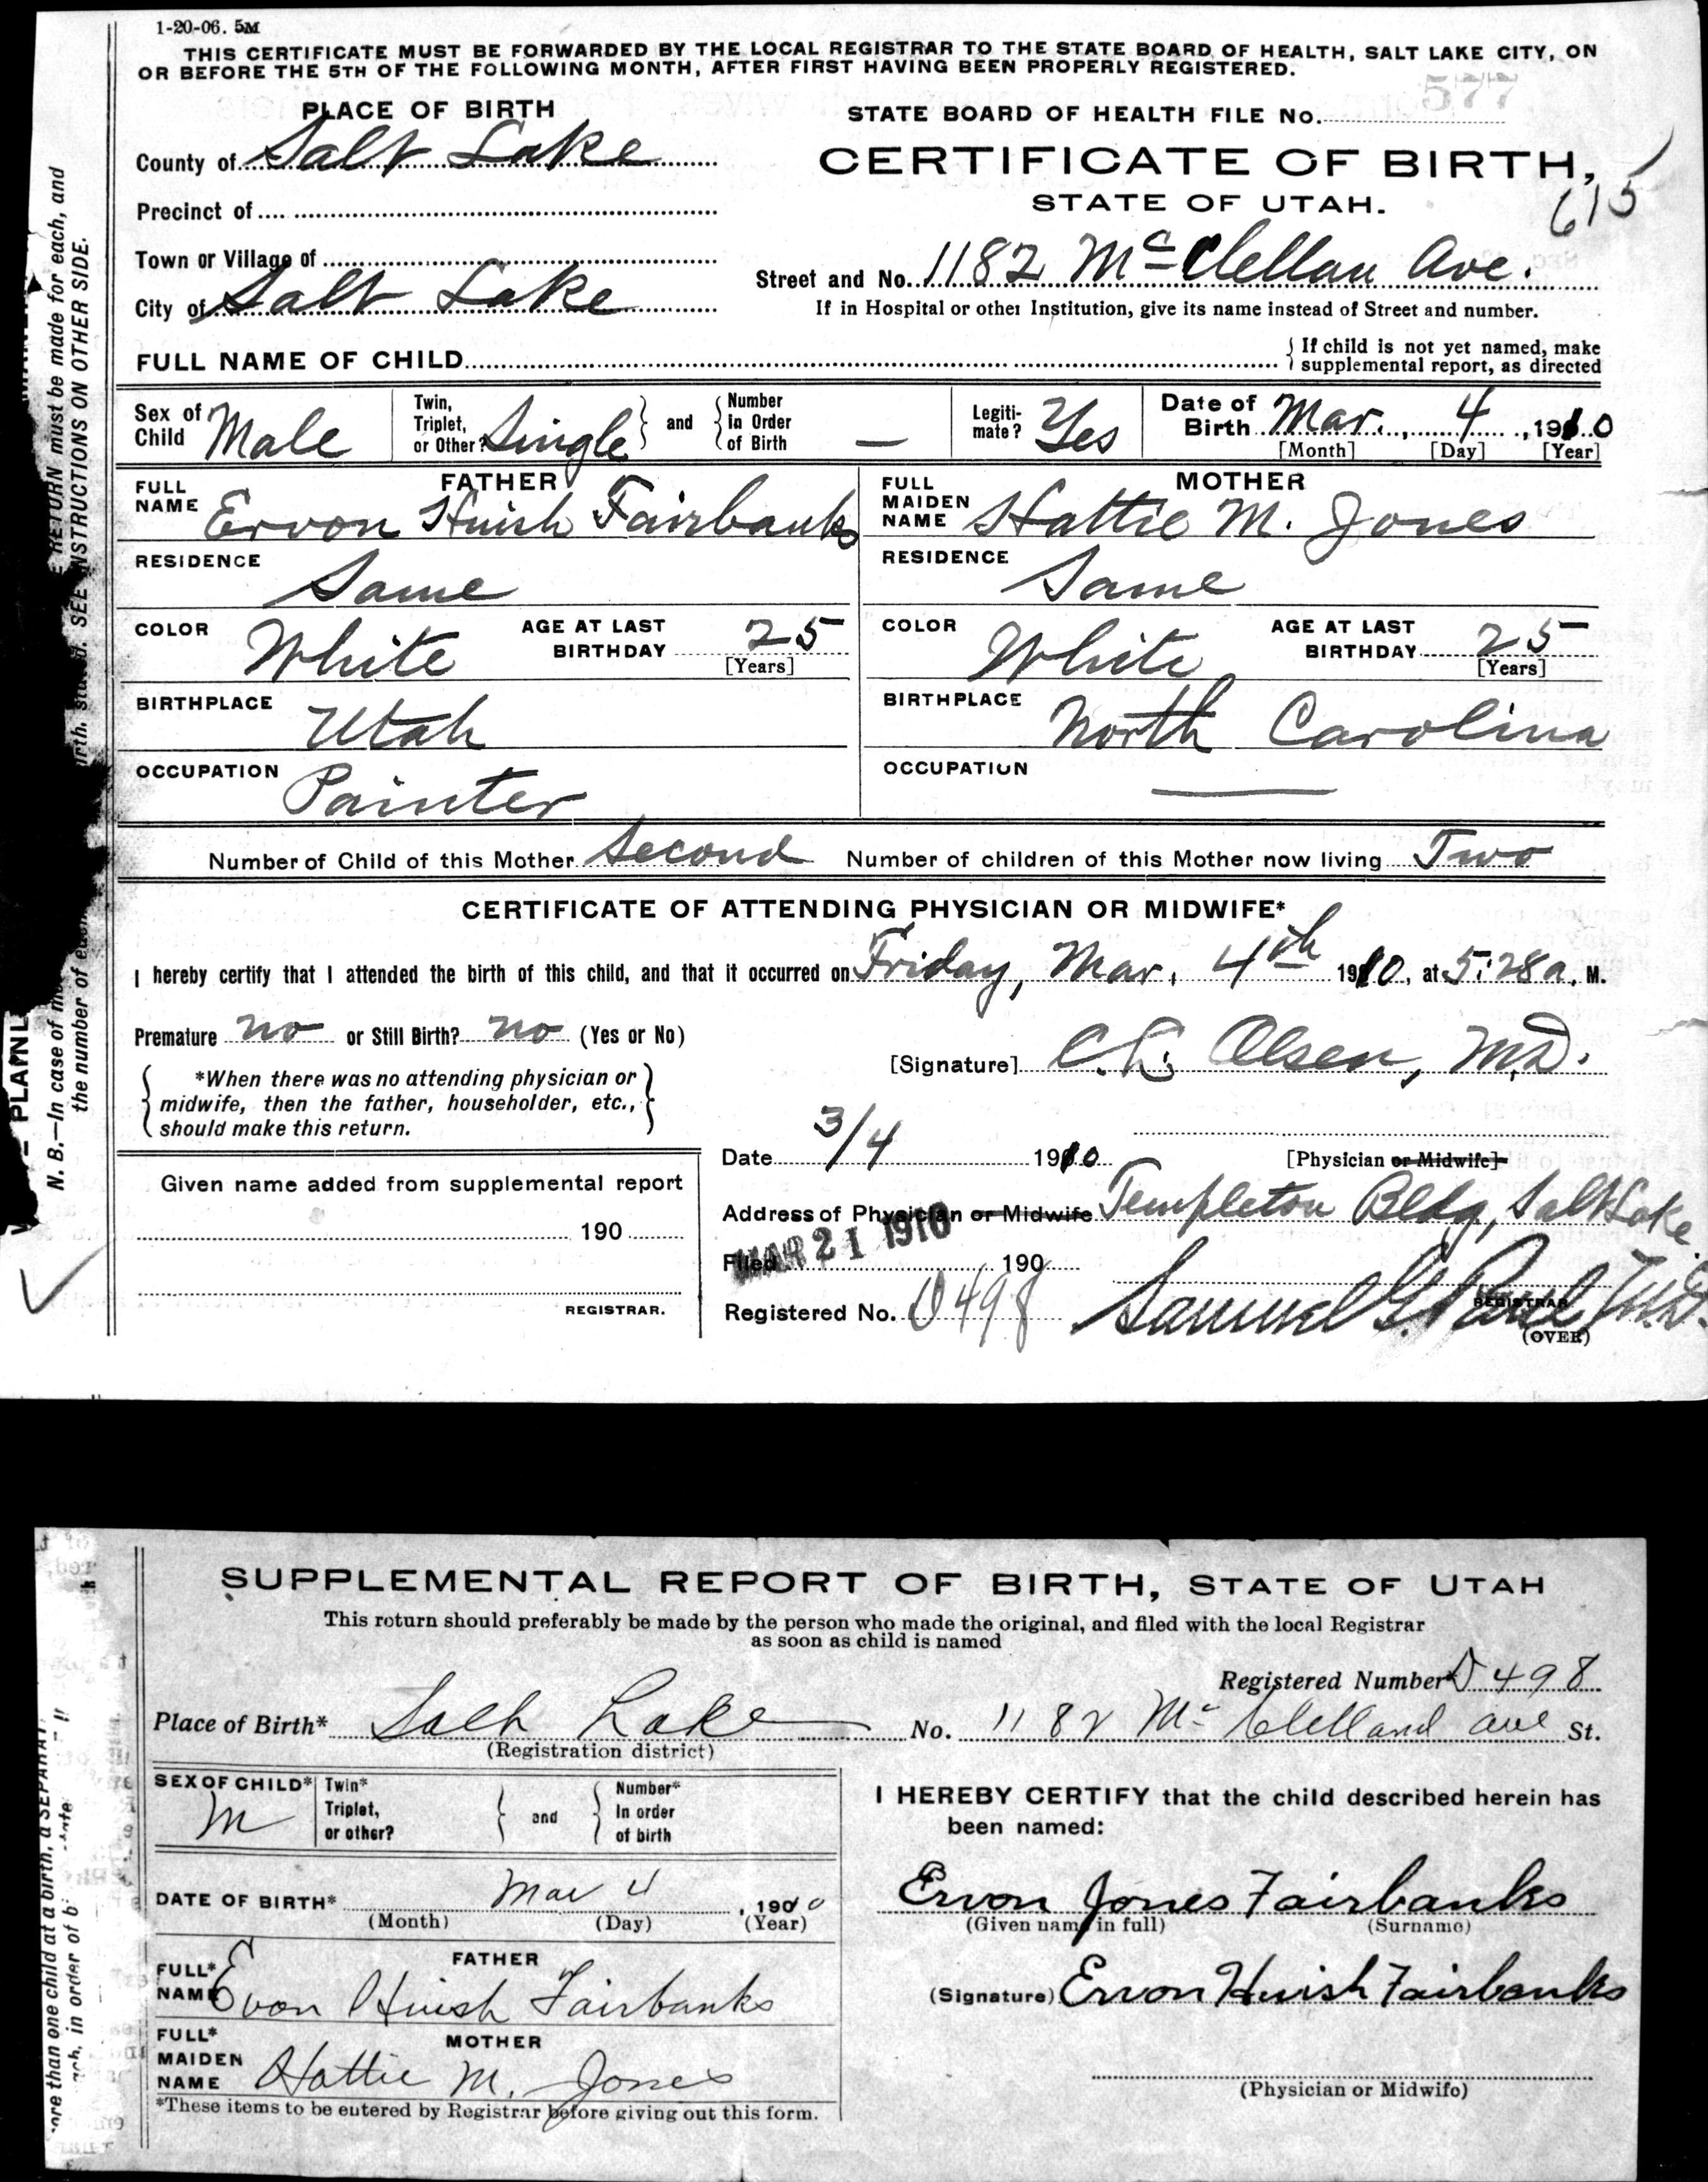 1-20-06. 5M
THIS CERTIFICATE MUST BE FORWARDED BY THE LOCAL REGISTRAR TO THE STATE BOARD OF HEALTH, SALT LAKE CITY, ON
OR BEFORE THE 5TH OF THE FOLLOWING MONTH, AFTER FIRST HAVING BEEN PROPERLY REGISTERED.
577
PLACE OF BIRTH
STATE BOARD OF HEALTH FILE No.
County of Salt Lake
CERTIFICATE OF BIRTH,
615
Precinct of
STATE OF UTAH.
Town or Village of
Street and No. 1182 McClellan Ave.
City of Salt Lake
If in Hospital or other Institution, give its name instead of Street and number.
FULL NAME OF CHILD
If child is not yet named, make
supplemental report, as directed
Sex of Child Male
Twin, Triplet, or Other? Single and Number in Order of Birth —
Legitimate? Yes
Date of Birth Mar. 4, 1910
[Month] [Day] [Year]
FATHER
FULL NAME Ervon Huish Fairbanks
RESIDENCE Same
COLOR White
AGE AT LAST BIRTHDAY 25 [Years]
BIRTHPLACE Utah
OCCUPATION Painter
MOTHER
FULL MAIDEN NAME Hattie M. Jones
RESIDENCE Same
COLOR White
AGE AT LAST BIRTHDAY 25 [Years]
BIRTHPLACE North Carolina
OCCUPATION —
Number of Child of this Mother Second Number of children of this Mother now living Two
CERTIFICATE OF ATTENDING PHYSICIAN OR MIDWIFE*
I hereby certify that I attended the birth of this child, and that it occurred on Friday, Mar. 4th 1910, at 5:28 a. M.
Premature no or Still Birth? no (Yes or No)
[Signature] C. L. Olsen, M.D.
*When there was no attending physician or
midwife, then the father, householder, etc.,
should make this return.
Date 3/4 1910
[Physician or Midwife]
Given name added from supplemental report
190
REGISTRAR.
Address of Physician or Midwife Templeton Bldg, Salt Lake.
MAR 21 1910
Filed 190
Registered No. D498
Samuel G. Paul, M.D.
REGISTRAR
(OVER)
RETURN must be made for each, and
SEE INSTRUCTIONS ON OTHER SIDE.
PLAINL
N. B.—In case of
the number of
SUPPLEMENTAL REPORT OF BIRTH, STATE OF UTAH
This return should preferably be made by the person who made the original, and filed with the local Registrar
as soon as child is named
Registered Number D498
Place of Birth* Salt Lake No. 1182 McClelland ave St.
(Registration district)
SEX OF CHILD* M
Twin* Triplet, or other? and Number* In order of birth
DATE OF BIRTH* Mar 4, 1910
(Month) (Day) (Year)
FATHER
FULL* NAME Evon Huish Fairbanks
MOTHER
FULL* MAIDEN NAME Hattie M. Jones
*These items to be entered by Registrar before giving out this form.
I HEREBY CERTIFY that the child described herein has
been named:
Ervon Jones Fairbanks
(Given name in full) (Surname)
(Signature) Ervon Huish Fairbanks
(Physician or Midwife)
ore than one child at a birth, a SEPARAT
in order of bi